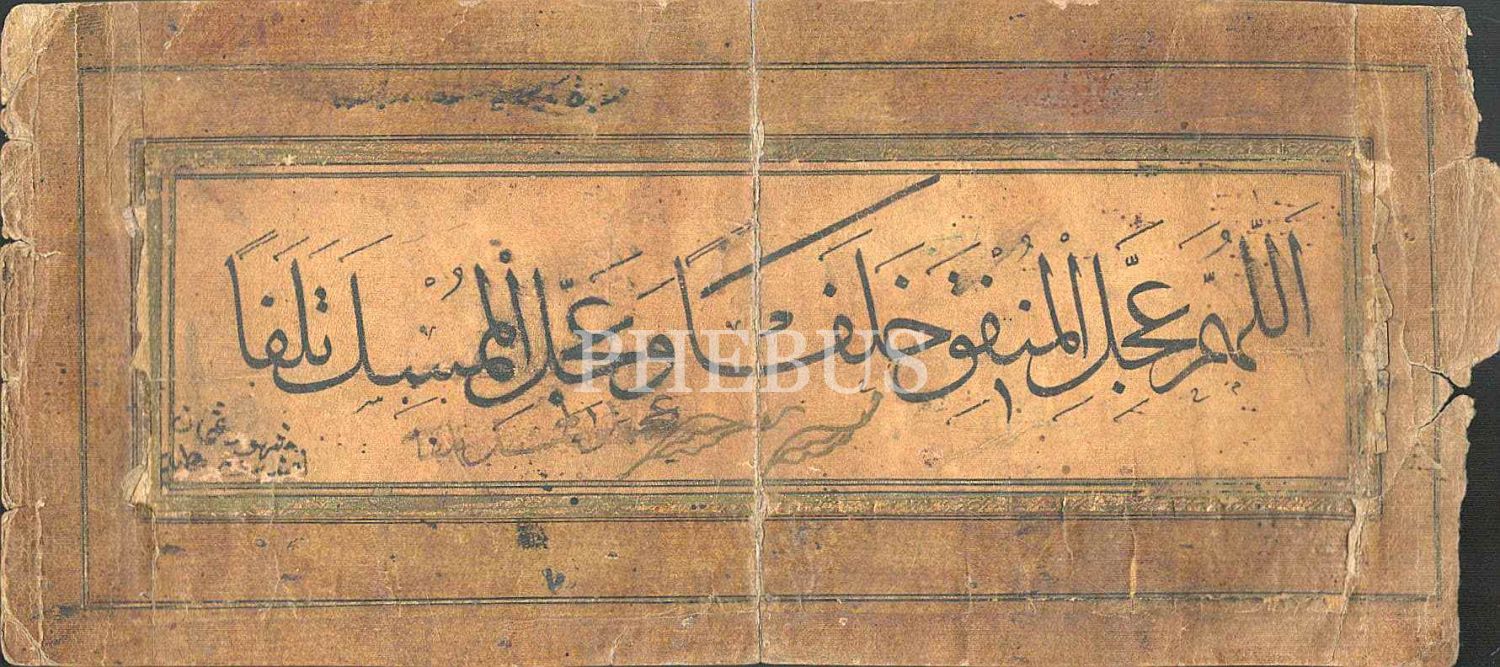 اَللّٰهُمَّ عَجِّلْ لِمُنْفِقٍ خَلَفًا وَعَجِّلْ لِمُمْسِكٍ تَلَفًا
PHEBUS